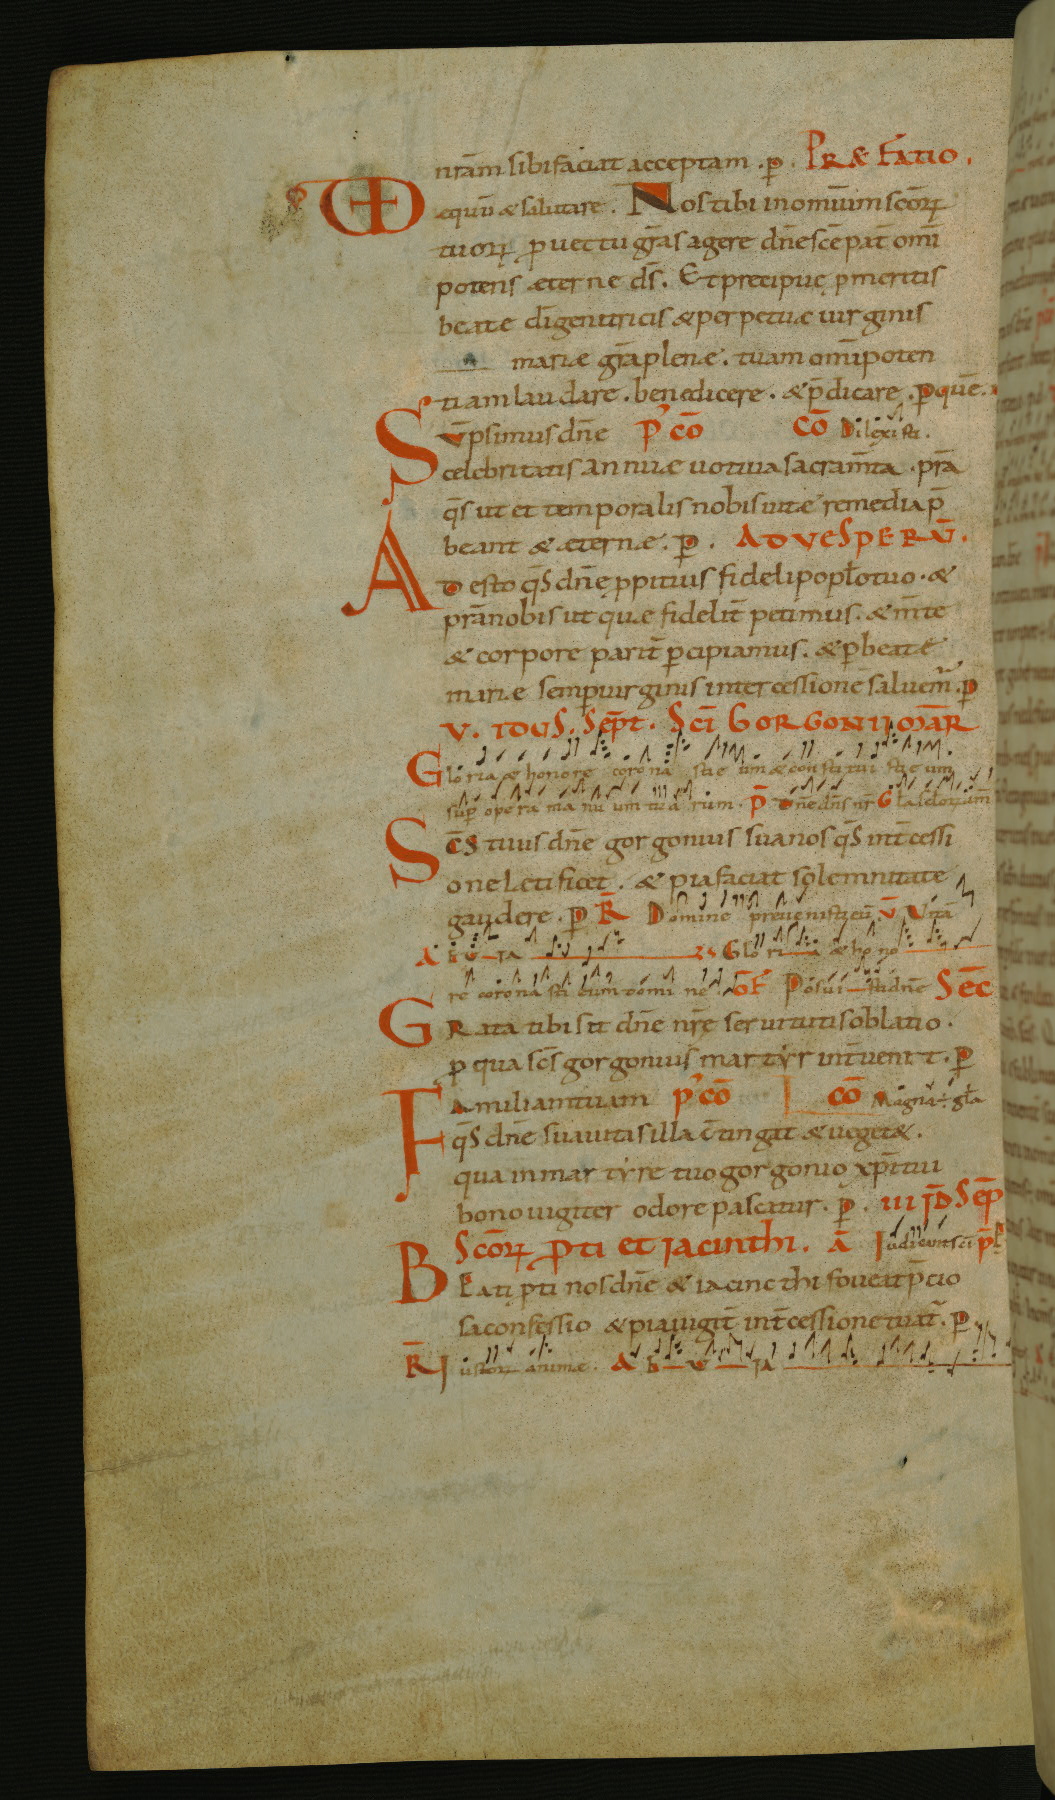 nram sibi faciat acceptam . p̄ . PRÆFATIO .
equū & salutare . Nos tibi in omniū scōrꝝ
tuorꝝ ꝓuectu grās agere dn̄e scē pat̄ omī
potens æterne ds̄ . Et precipuę ꝓ meritis
beate dīgenitricis & perpetuæ uirginis
mariæ grā plenæ . tuam omīpoten
tiam laudare . benedicere . & p̄dicare . p̄ quē .
SVpsimus dn̄e P' cō CŌ Dilexisti .
celebritatis annuæ uotiua sacram̄ta . prā
qs̄ ut et temporalis nobis uitæ remedia p̄
beant & æternæ . p̄ . AD VESPERŪ .
ADesto qs̄ dn̄e ꝓpitius fideli poplo tuo . &
prā nobis ut quæ fidelit̄ petimus . & m̄te
& corpore parit̄ p̄cipiamus . & p̄ beatæ
mariæ semp̄ uirginis intercessionē saluem̄ . p̄
V . IDUS . SEPT . SCI GORGONII MAR̄
Gloria & honore coronasti eum & constituisti eum
sup̄ opera manuum tuarum . P̄ Dn̄e dn̄s nr̄ Gła seculorum am̄
SCS tuus dn̄e gorgonius sua nos qs̄ int̄cessi
one letificet . & pia faciat solemnitate
gaudere . p̄ R̄ Domine preuenisti eū V̄ Vitā
A ƚ U IA Gloria & hono
re coronasti eum domine . OF Posuisti dn̄e SEC
GRata tibi sit dn̄e nr̄e seruitutis oblatio .
p̄ qua scs̄ gorgonius martyr int̄uenit . p̄
FAmiliam tuam P' cō CŌ Magna ÷ gła
qs̄ dn̄e suauitas illa c̄tingat & uegetæ .
qua in martyre tuo gorgonio xp̄i tui
bono iugiter odore pascatur . p̄ . III ID SEP
SCŌRꝜ PTI ET IACINTHI . Ā Iudicant sci P̄s
BEati pti nos dn̄e & iacincthi foueat p̄cio
sa confessio & pia iugit̄ int̄cessione tueat̄ . p̄
R̄ Iustorꝝ animæ . A ƚ U IA